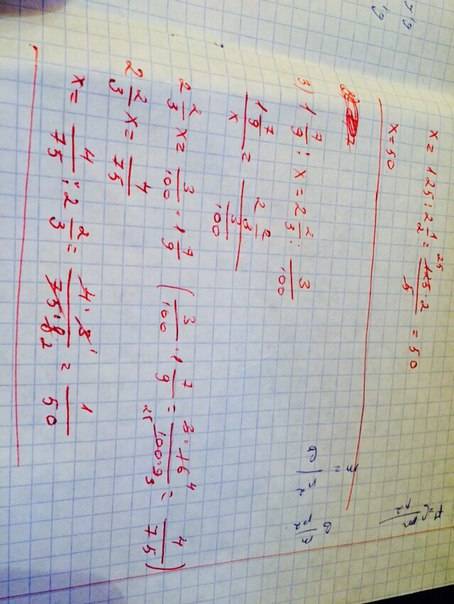 x = 125 : 2 1/2 = 125·2/5 = 50
x = 50
3) 1 7/9 : x = 2 2/3 : 3/100
1 7/9 / x = 2 2/3 / 3/100
2 2/3 x = 3/100 · 1 7/9 (3/100 · 1 7/9 = 3·16/100·9 = 4/75)
2 2/3 x = 4/75
x = 4/75 : 2 2/3 = 4·3/75·8 = 1/50